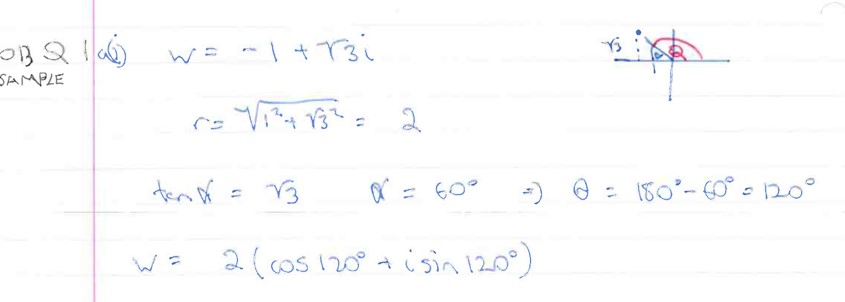 OB Q 1 a(i) w = -1 + √3i
SAMPLE
√3
1
α
θ
r = √(1² + √3²) = 2
tan α = √3 α = 60° ⇒ θ = 180° - 60° = 120°
w = 2(cos 120° + i sin 120°)